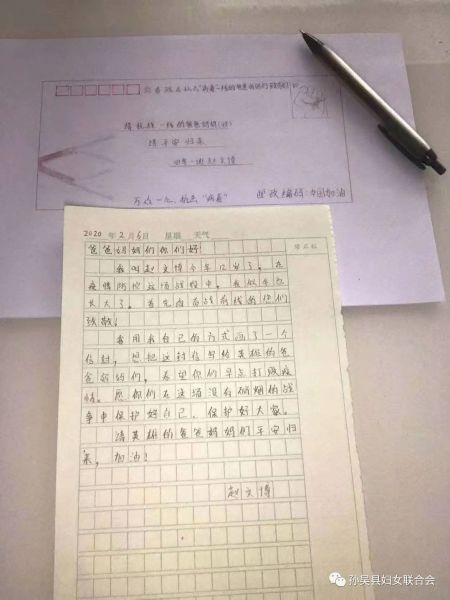 一线的爸爸妈妈们致敬
抗战一线的爸爸妈妈(收)
请平安归来
四年一班赵文博
万众一心,抗击“病毒” 邮政编码:中国加油
2020年2月6日 星期 天气
爸爸妈妈们你们好!
我叫赵文博今年12岁了。在
疫情防控这场战役中,我似乎也
长大了。首先向奋战前线的你们
致敬!
我用我自己的方式画了一个
信封,想把这封信写给英雄的爸
爸妈妈们,希望你们早点打败疫
情。愿你们在这场没有硝烟的战
争中保护好自己,保护好大家。
请英雄的爸爸妈妈们平安归
来,加油!
赵文博
孙吴县妇女联合会